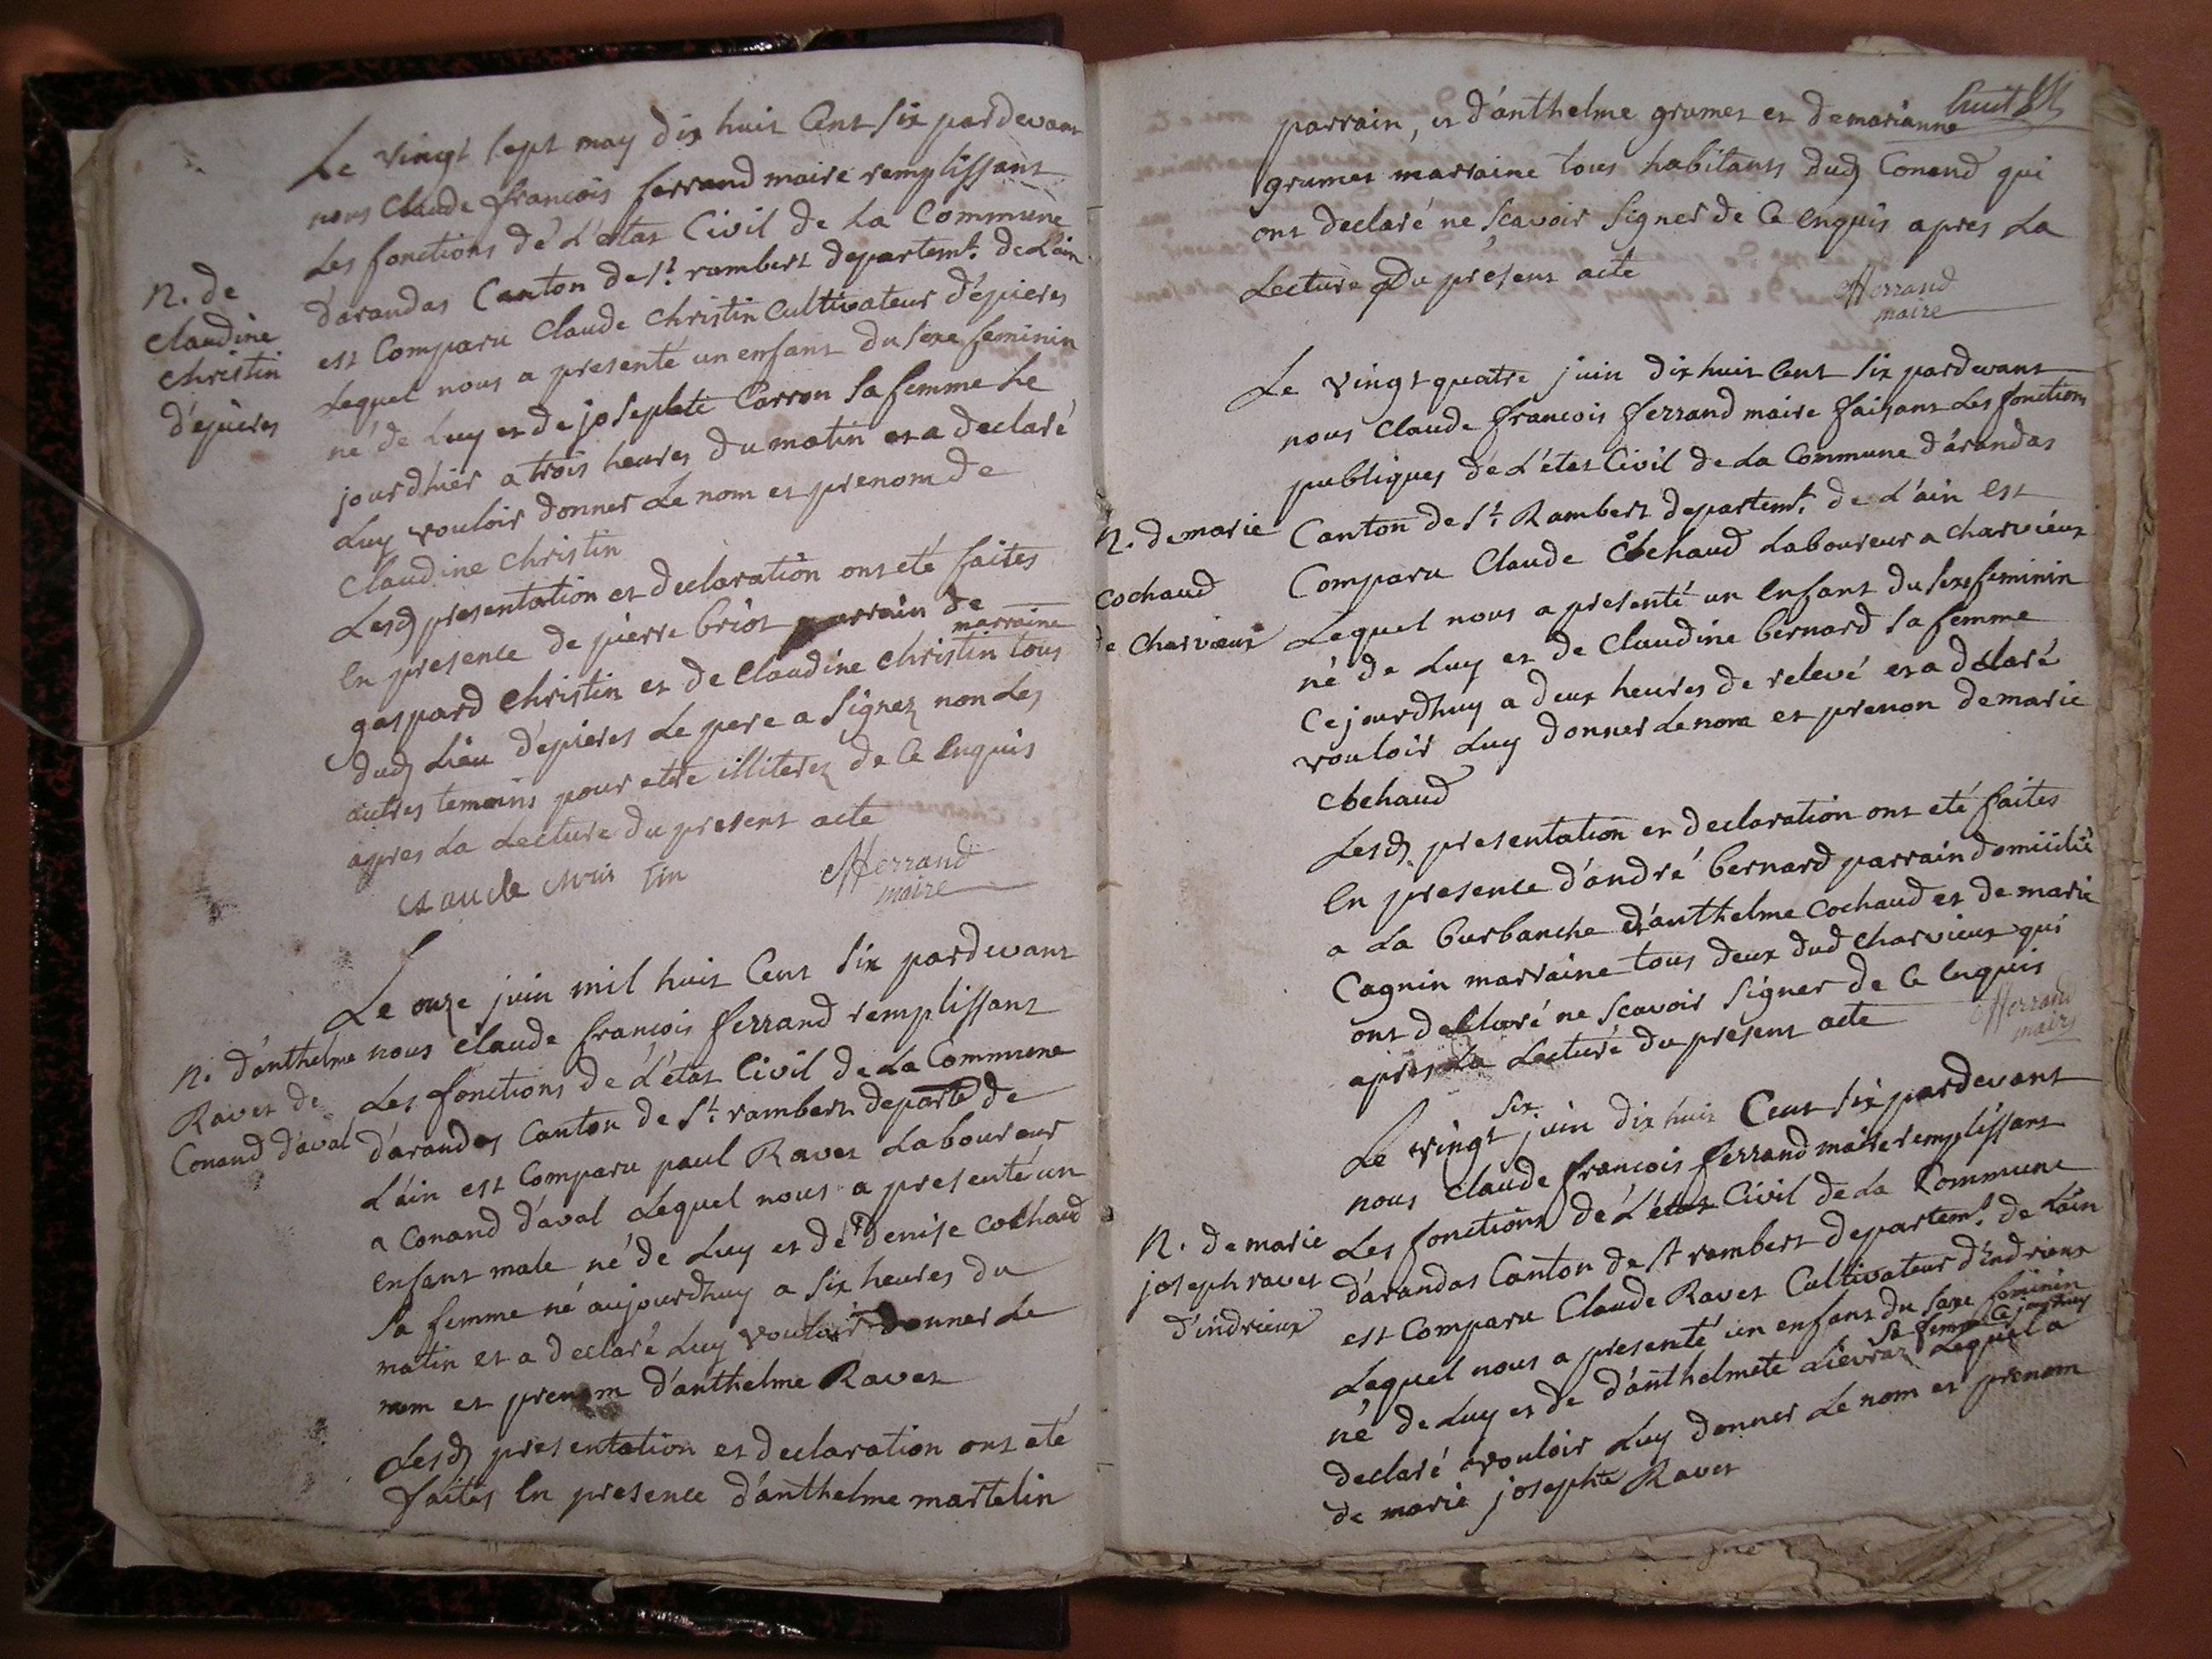 Le vingt sept may dix huit Cent six pardevant
nous Claude françois ferrand maire remplissant
Les fonctions de L'état Civil de La Commune
d'arandas Canton de St. rambert departemt. de L'ain
N. de
claudine
christin
d'epieres
est Comparu Claude christin Cultivateur d'épieres
Lequel nous a presenté un enfant du sexe feminin
né de Luy et de josephte Carron sa femme Le
jourdhier a trois heures du matin et a declaré
Luy vouloir donner Le nom et prenom de
Claudine christin
Lesd presentation et declaration ont eté faites
En presence de pierre briot parrain de
marraine
gaspard christin et de Claudine christin tous
dud Lieu d'epieres Le pere a signez non Les
autres temoins pour etre illiterez de Ce Enquis
apres La Lecture du present acte
Claude chris tin
ferrand
maire
Le onze juin mil huit Cent six pardevant
N. d'anthelme
Ravet de
Conand d'aval
nous claude françois ferrand remplissant
Les fonctions de L'état Civil de La Commune
d'arandas Canton de St. rambert departe de
L'ain est Comparu paul Ravet Laboureur
a Conand d'aval Lequel nous a presenté un
enfant male né de Luy et de denise cochaud
sa femme né aujourdhuy a six heures du
matin et a declaré Luy vouloir donner Le
nom et prenom d'anthelme Ravet
Lesd presentation et declaration ont eté
faites En presence d'anthelme martelin
huit
parrain, et d'anthelme grumet et demarianne
grumet marraine tous habitants dud Conand qui
ont declaré ne sçavoir signer de Ce enquis apres La
Lecture du présent acte
ferrand
maire
Le vingt quatre juin dix huit Cent six pardevant
nous Claude françois ferrand maire faisant Les fonctions
publiques de L'état Civil de La Commune d'arandas
N. de marie
cochaud
de Charvieux
Canton de St. Rambert departemt. de L'ain Est
Comparu Claude Cochaud Laboureur a charvieux
Lequel nous a presenté un Enfant du sexe feminin
né de Luy et de Claudine bernard sa femme
Cejourdhuy a deux heures de relevé et a déclaré
vouloir Luy donner Le nom et prenon de marie
Cochaud
Lesd presentation et declaration ont eté faites
En presence d'andré bernard parrain domicilié
a La burbanche d'anthelme cochaud et de marie
Cagnin marraine tous deux dud charvieux qui
ont declaré ne scavoir signer de Ce Enquis
après La Lecture du present acte
ferrand
maire
six
Le vingt juin dix huit Cent six pardevant
nous Claude françois ferrand maire remplissant
N. de marie
joseph ravet
d'indrieux
Les fonctions de L'état Civil de La Commune
d'arandas Canton de st rambert departemt. de L'ain
est Comparu Claude Ravet Cultivateur d'indrieux
Lequel nous a presenté un enfant du sexe feminin
sa femme Cejourdhuy
né de Luy et de d'anthelmete Lievraz Lequel a
declaré vouloir Luy donner Le nom et prenom
de marie josephte Ravet